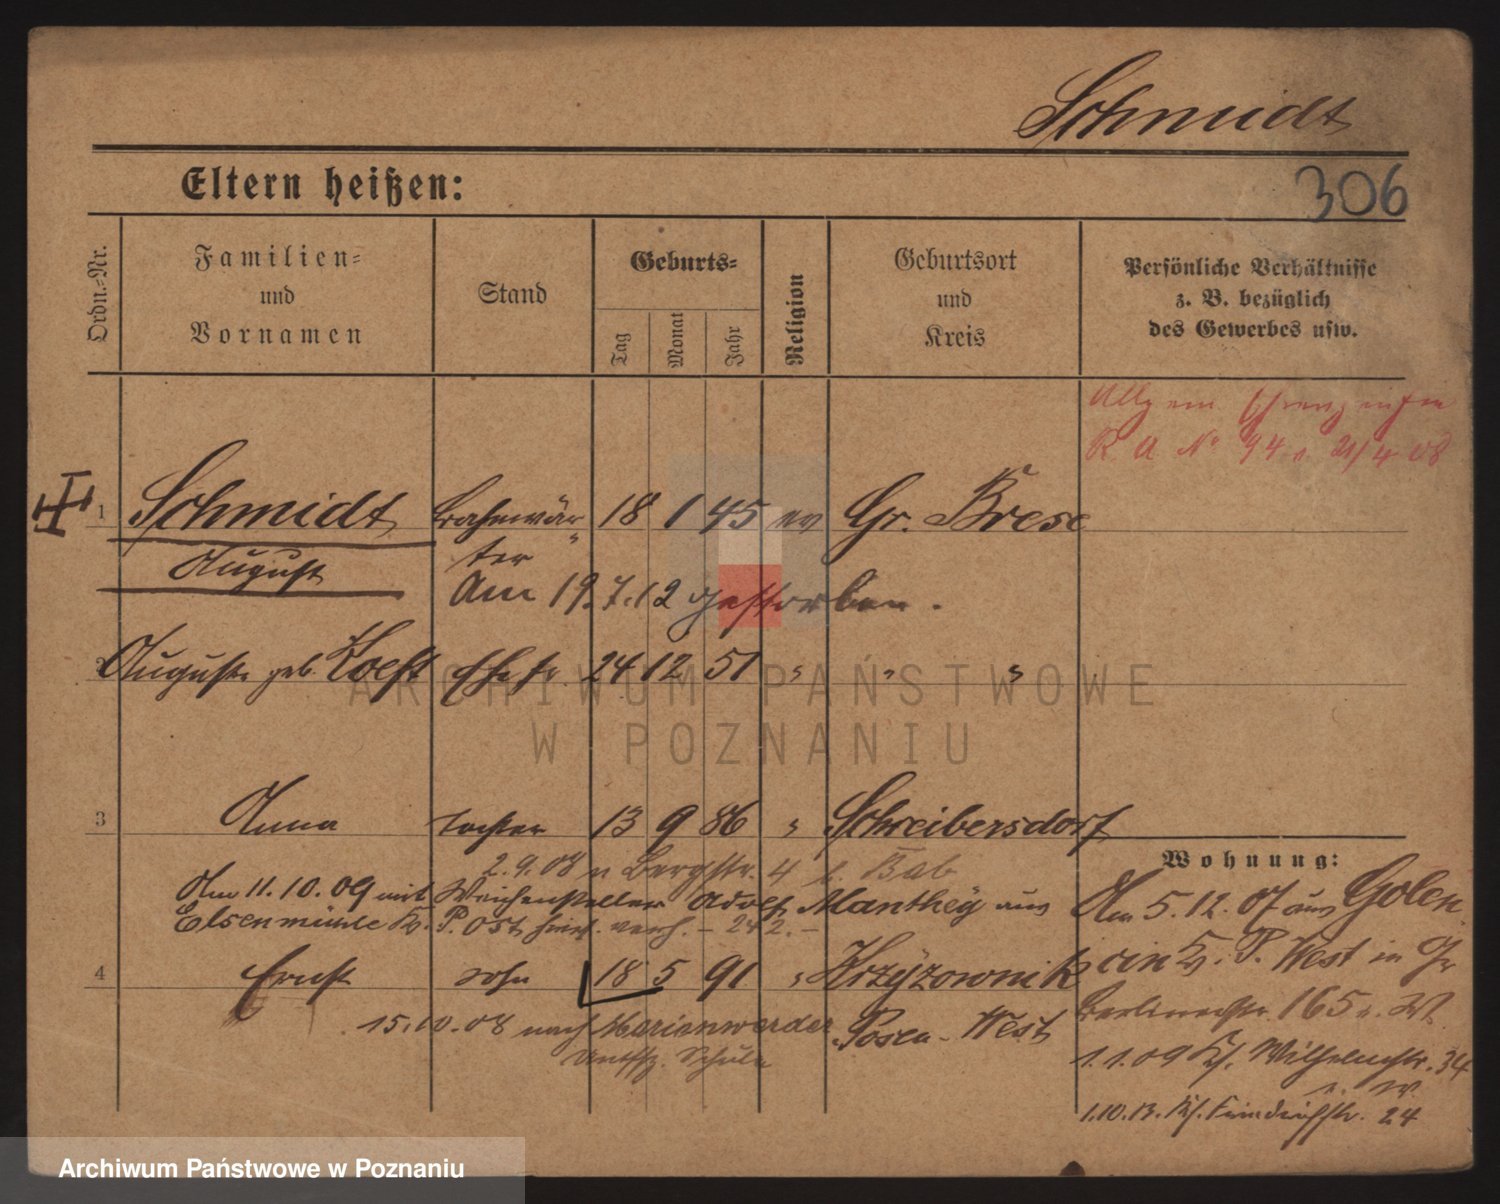 Schmidt
Eltern heißen:
306
Ordn.-Nr.
Familien-
und
Vornamen
Stand
Geburts-
Tag
Monat
Jahr
Religion
Geburtsort
und
Kreis
Persönliche Verhältnisse
z. B. bezüglich
des Gewerbes usw.
R A No 94 21/4 08
1 Schmidt Bahnwär- 18 1 45 ev Gr. Brese
August ter
Am 19.7.12 gestorben.
2 Auguste geb. Ehefr. 24 12 51 " " "
ARCHIWUM PAŃSTWOWE
W POZNANIU
3 Anna Tochter 13 9 86 " Schreibersdorf
2.9.08 n Bergstr. 4 b. Bab
Am 11.10.09 mit Weichensteller Adolf Manthey aus
Elsenmühle Kr. P. Ost hier verh. – 242. –
4 Ernst Sohn 18 5 91 " Krzyzownik
15.10.08 nach Marienwerder Posen-West
Untffz. Schule
Wohnung:
Am 5.12.07 aus Golen
cin Kr. P. West in Gr
Berlinerstr. 165
1.1.09 Kf. Wilhelmstr. 34
1.10.13. Kf. Friedrichstr. 24
Archiwum Państwowe w Poznaniu